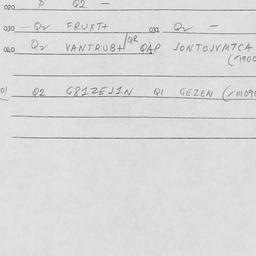 020 Q2 —
030 — Q2 FRUXT+ 031 Q2 —
040 Q2 VANTRUB+/QR QAP JONTOJVM7CA
(/1900
01 Q2 G81ZEJ1N Q1 GEZEN (/11109